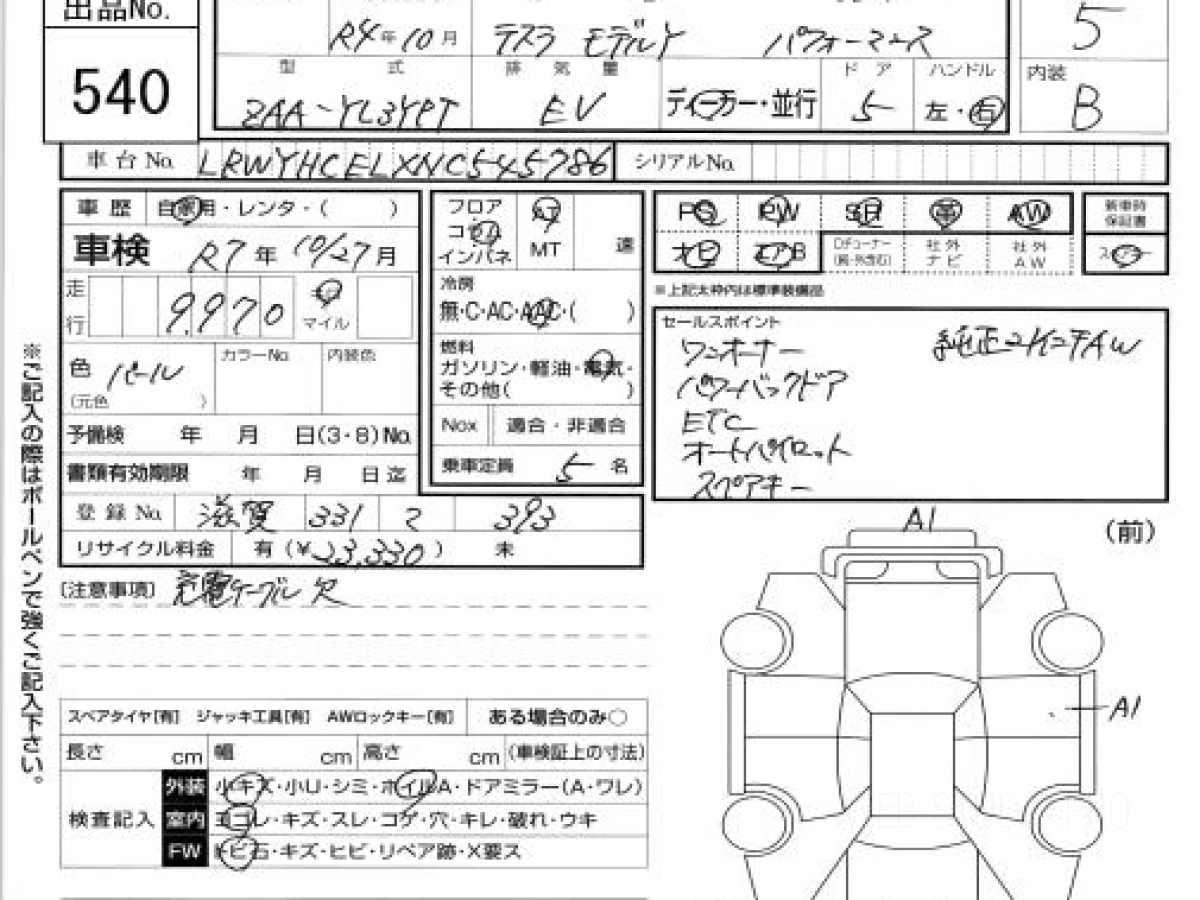 出品No.
540
R4年10月 テスラ モデルY パフォーマンス
5
型 式 排 気 量 ドア ハンドル 内装
ZAA-YL3YPT EV ディーラー・並行 5 左・右 B
車台No. LRWYHCELXNC545786 シリアルNo.
車歴 自家用・レンタ・( )
車検 R7年10/27月
走行 9,970 マイル
色 パール カラーNo. 内装色
(元色 )
予備検 年 月 日(3・8)No.
書類有効期限 年 月 日迄
登録No. 滋賀 331 393
リサイクル料金 有(¥23,330) 未
フロア コラム インパネ AT MT 速
冷房
無・C・AC・AAC・( )
燃料
ガソリン・軽油・電気・
その他( )
Nox 適合・非適合
乗車定員 5 名
PS PW SR 革 AW 新車時保証書
ナビ エアB 社外ナビ 社外AW
※上記太枠内は標準装備品
セールスポイント
ワンオーナー
パワーバックドア
ETC
オートパイロット
スペアキー
[注意事項] 充電ケーブル欠
※ご記入の際はボールペンで強くご記入下さい。
スペアタイヤ[有] ジャッキ工具[有] AWロックキー[有] ある場合のみ○
長さ cm 幅 cm 高さ cm (車検証上の寸法)
検査記入
外装 小キズ・小U・シミ・ホイルA・ドアミラー(A・ワレ)
室内 ヨゴレ・キズ・スレ・コゲ・穴・キレ・破れ・ウキ
FW トビ石・キズ・ヒビ・リペア跡・X要ス
A1
(前)
A1